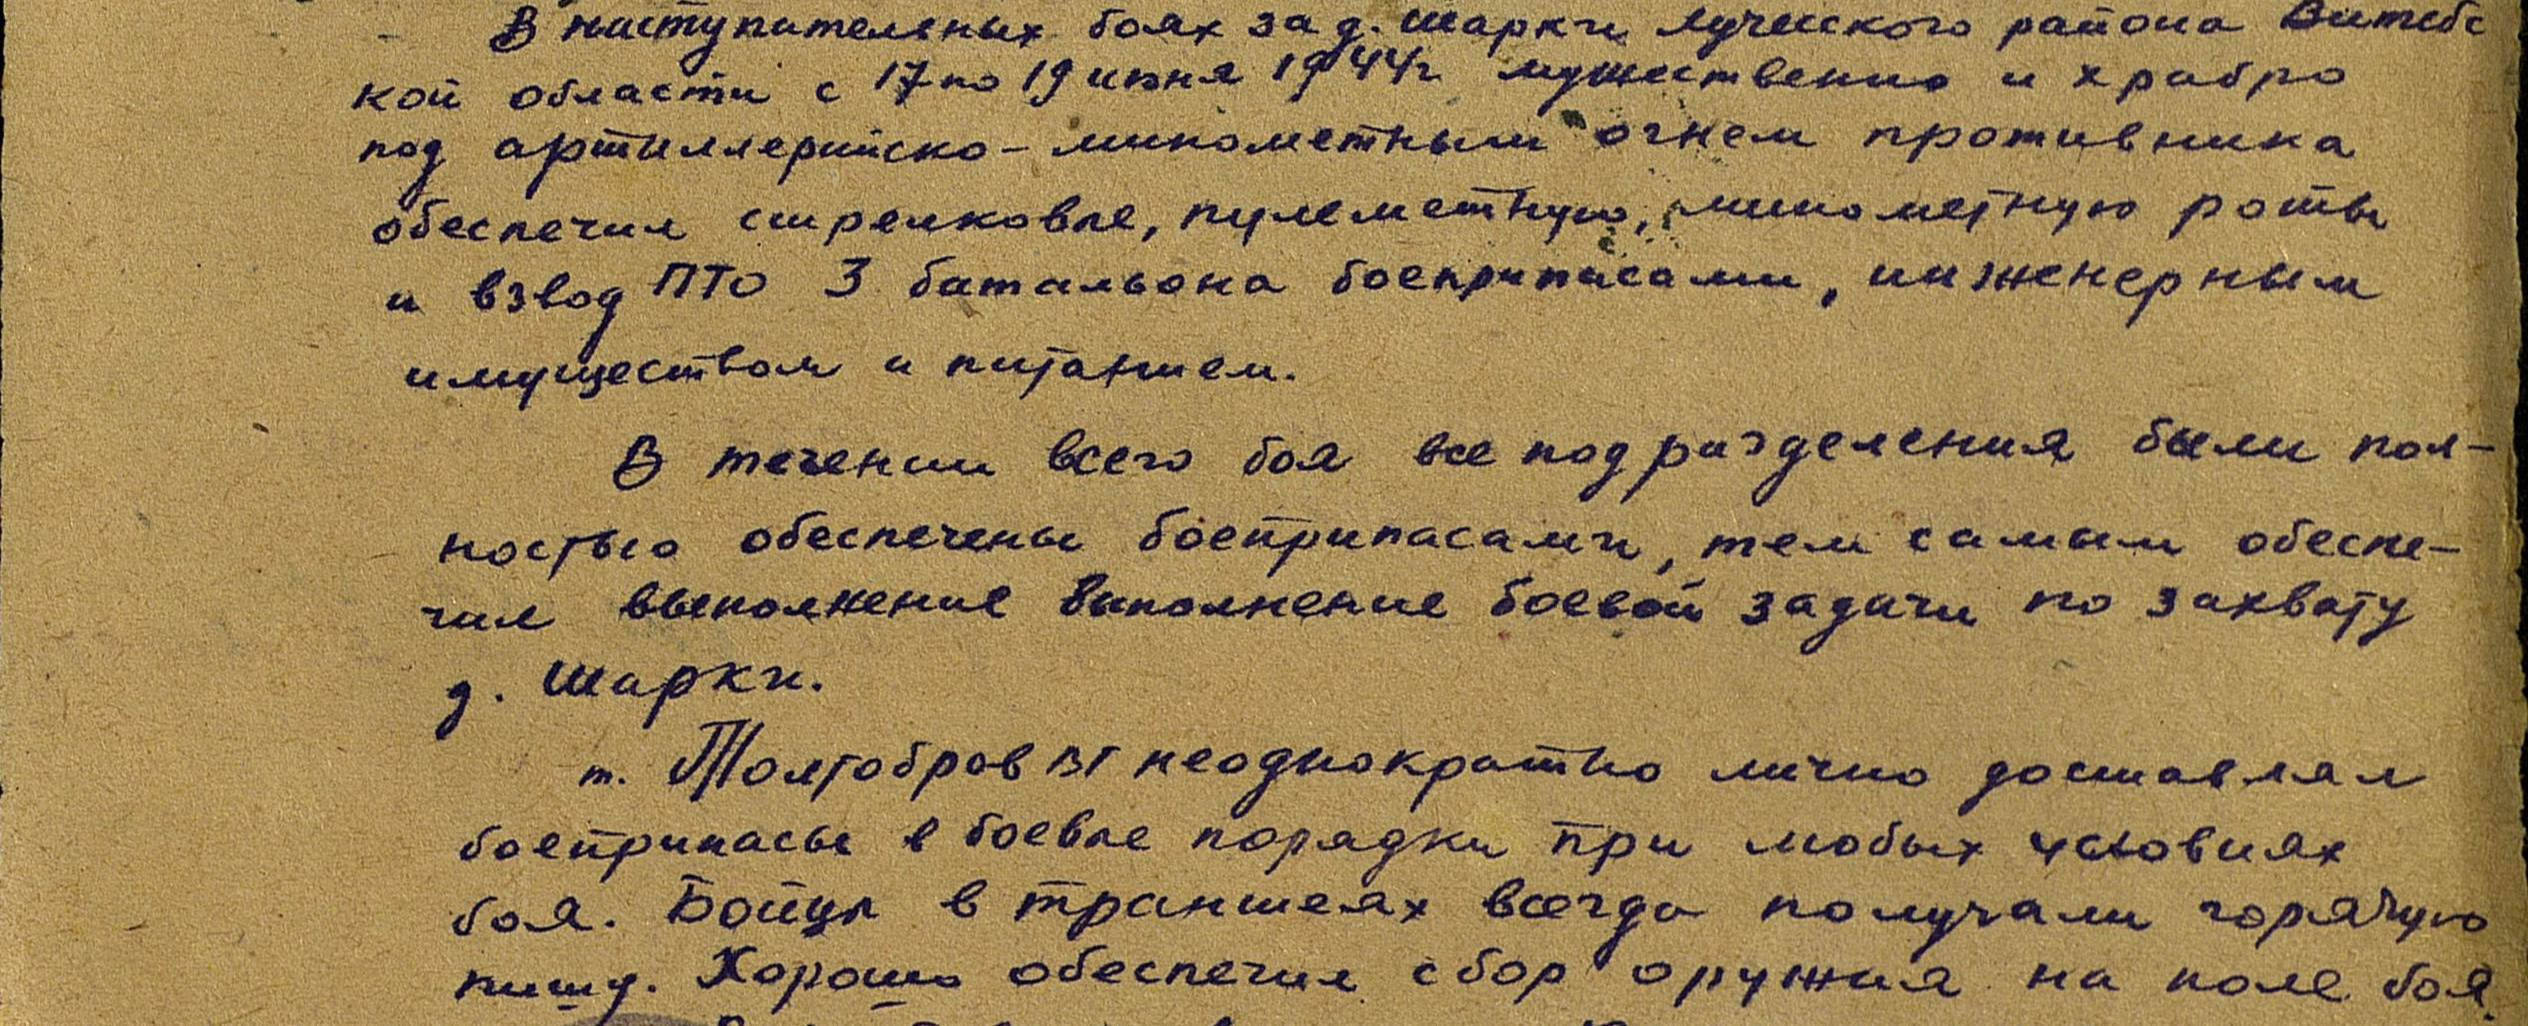 В наступательных боях за д. Шарки Лучесского района Витебс
кой области с 17 по 19 июня 1944 г мужественно и храбро
под артиллерийско-минометным огнем противника
обеспечил стрелковые, пулеметную, минометную роты
и взвод ПТО 3 батальона боеприпасами, инженерным
имуществом и питанием.
В течении всего боя все подразделения были пол-
ностью обеспечены боеприпасами, тем самым обеспе-
чил выполнение выполнение боевой задачи по захвату
д. Шарки.
т. Толтобров неоднократно лично доставлял
боеприпасы в боевые порядки при любых условиях
боя. Бойцы в траншеях всегда получали горячую
пищу. Хорошо обеспечил сбор оружия на поле боя.